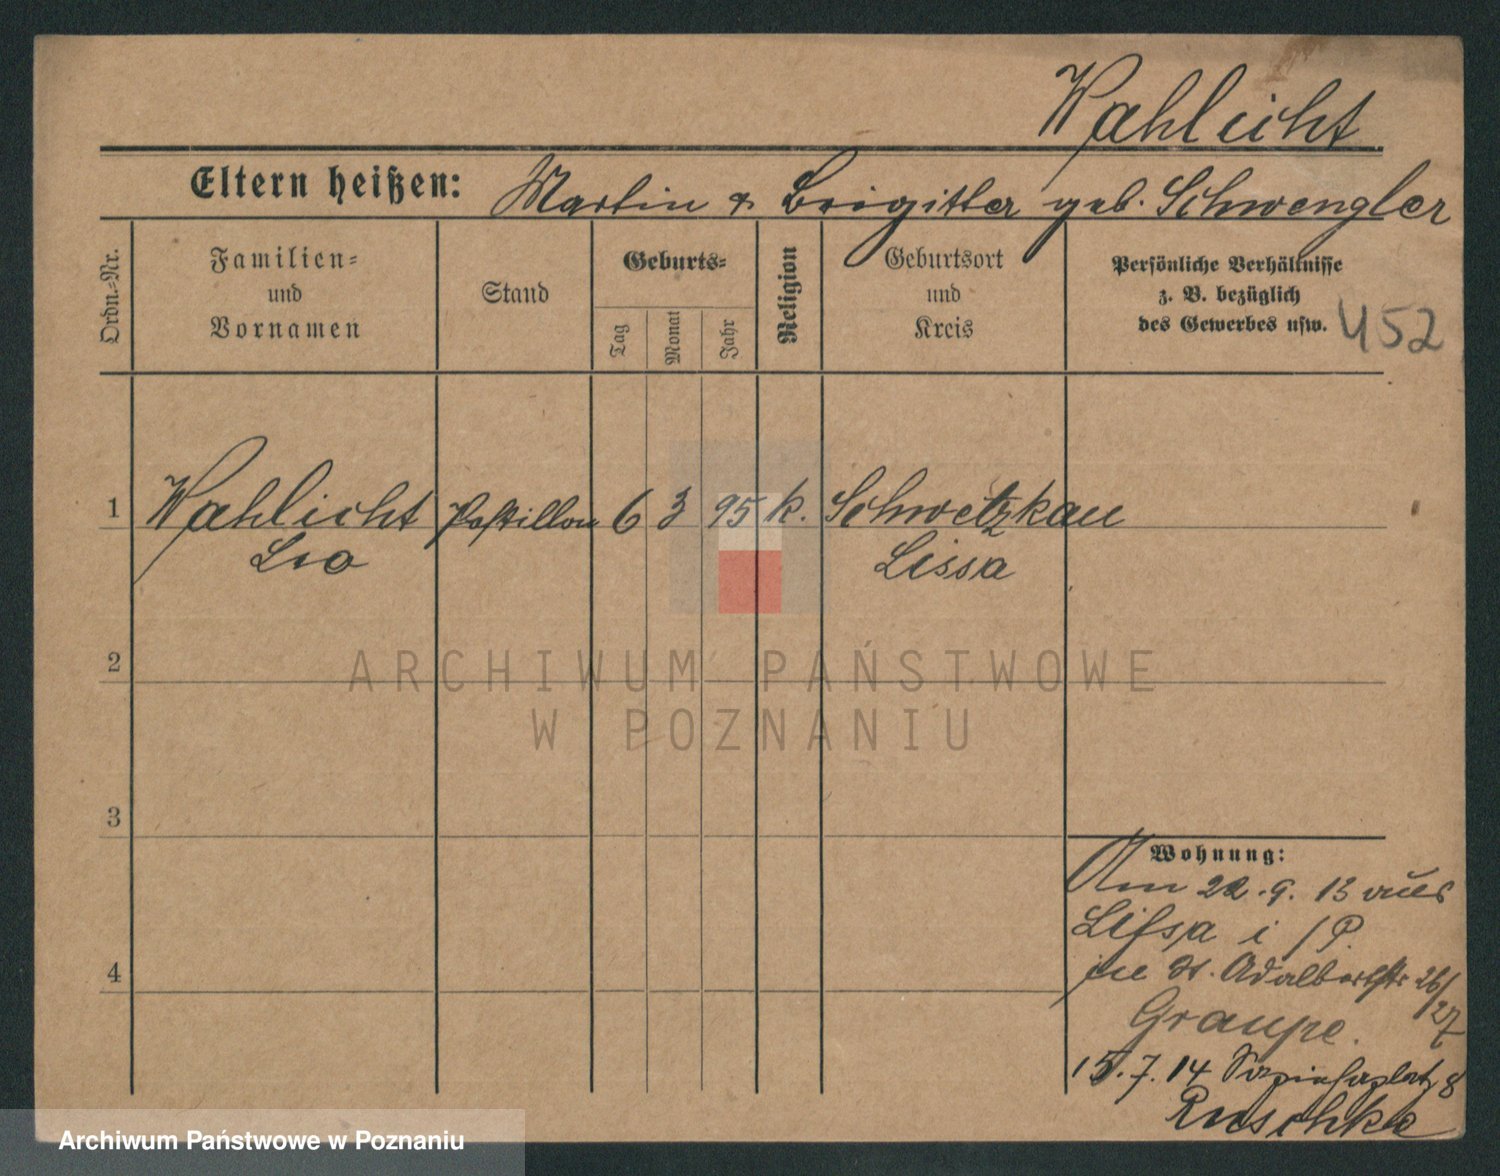 Wahlicht
Eltern heißen: Martin & Brigitta geb. Schwengler
Ordn.-Nr.
Familien-
und
Vornamen
Stand
Geburts-
Tag
Monat
Jahr
Religion
Geburtsort
und
Kreis
Persönliche Verhältnisse
z. B. bezüglich
des Gewerbes usw.
452
1 Wahlicht Postillon 6 3 95 k. Schwetzkau
Leo Lissa
2
ARCHIWUM PAŃSTWOWE
W POZNANIU
3
Wohnung:
Am 22.9.13 aus
Lissa i/P.
in St. Adalbertstr 26/27
4
Graupe.
15.7.14 8
Ruschke
Archiwum Państwowe w Poznaniu